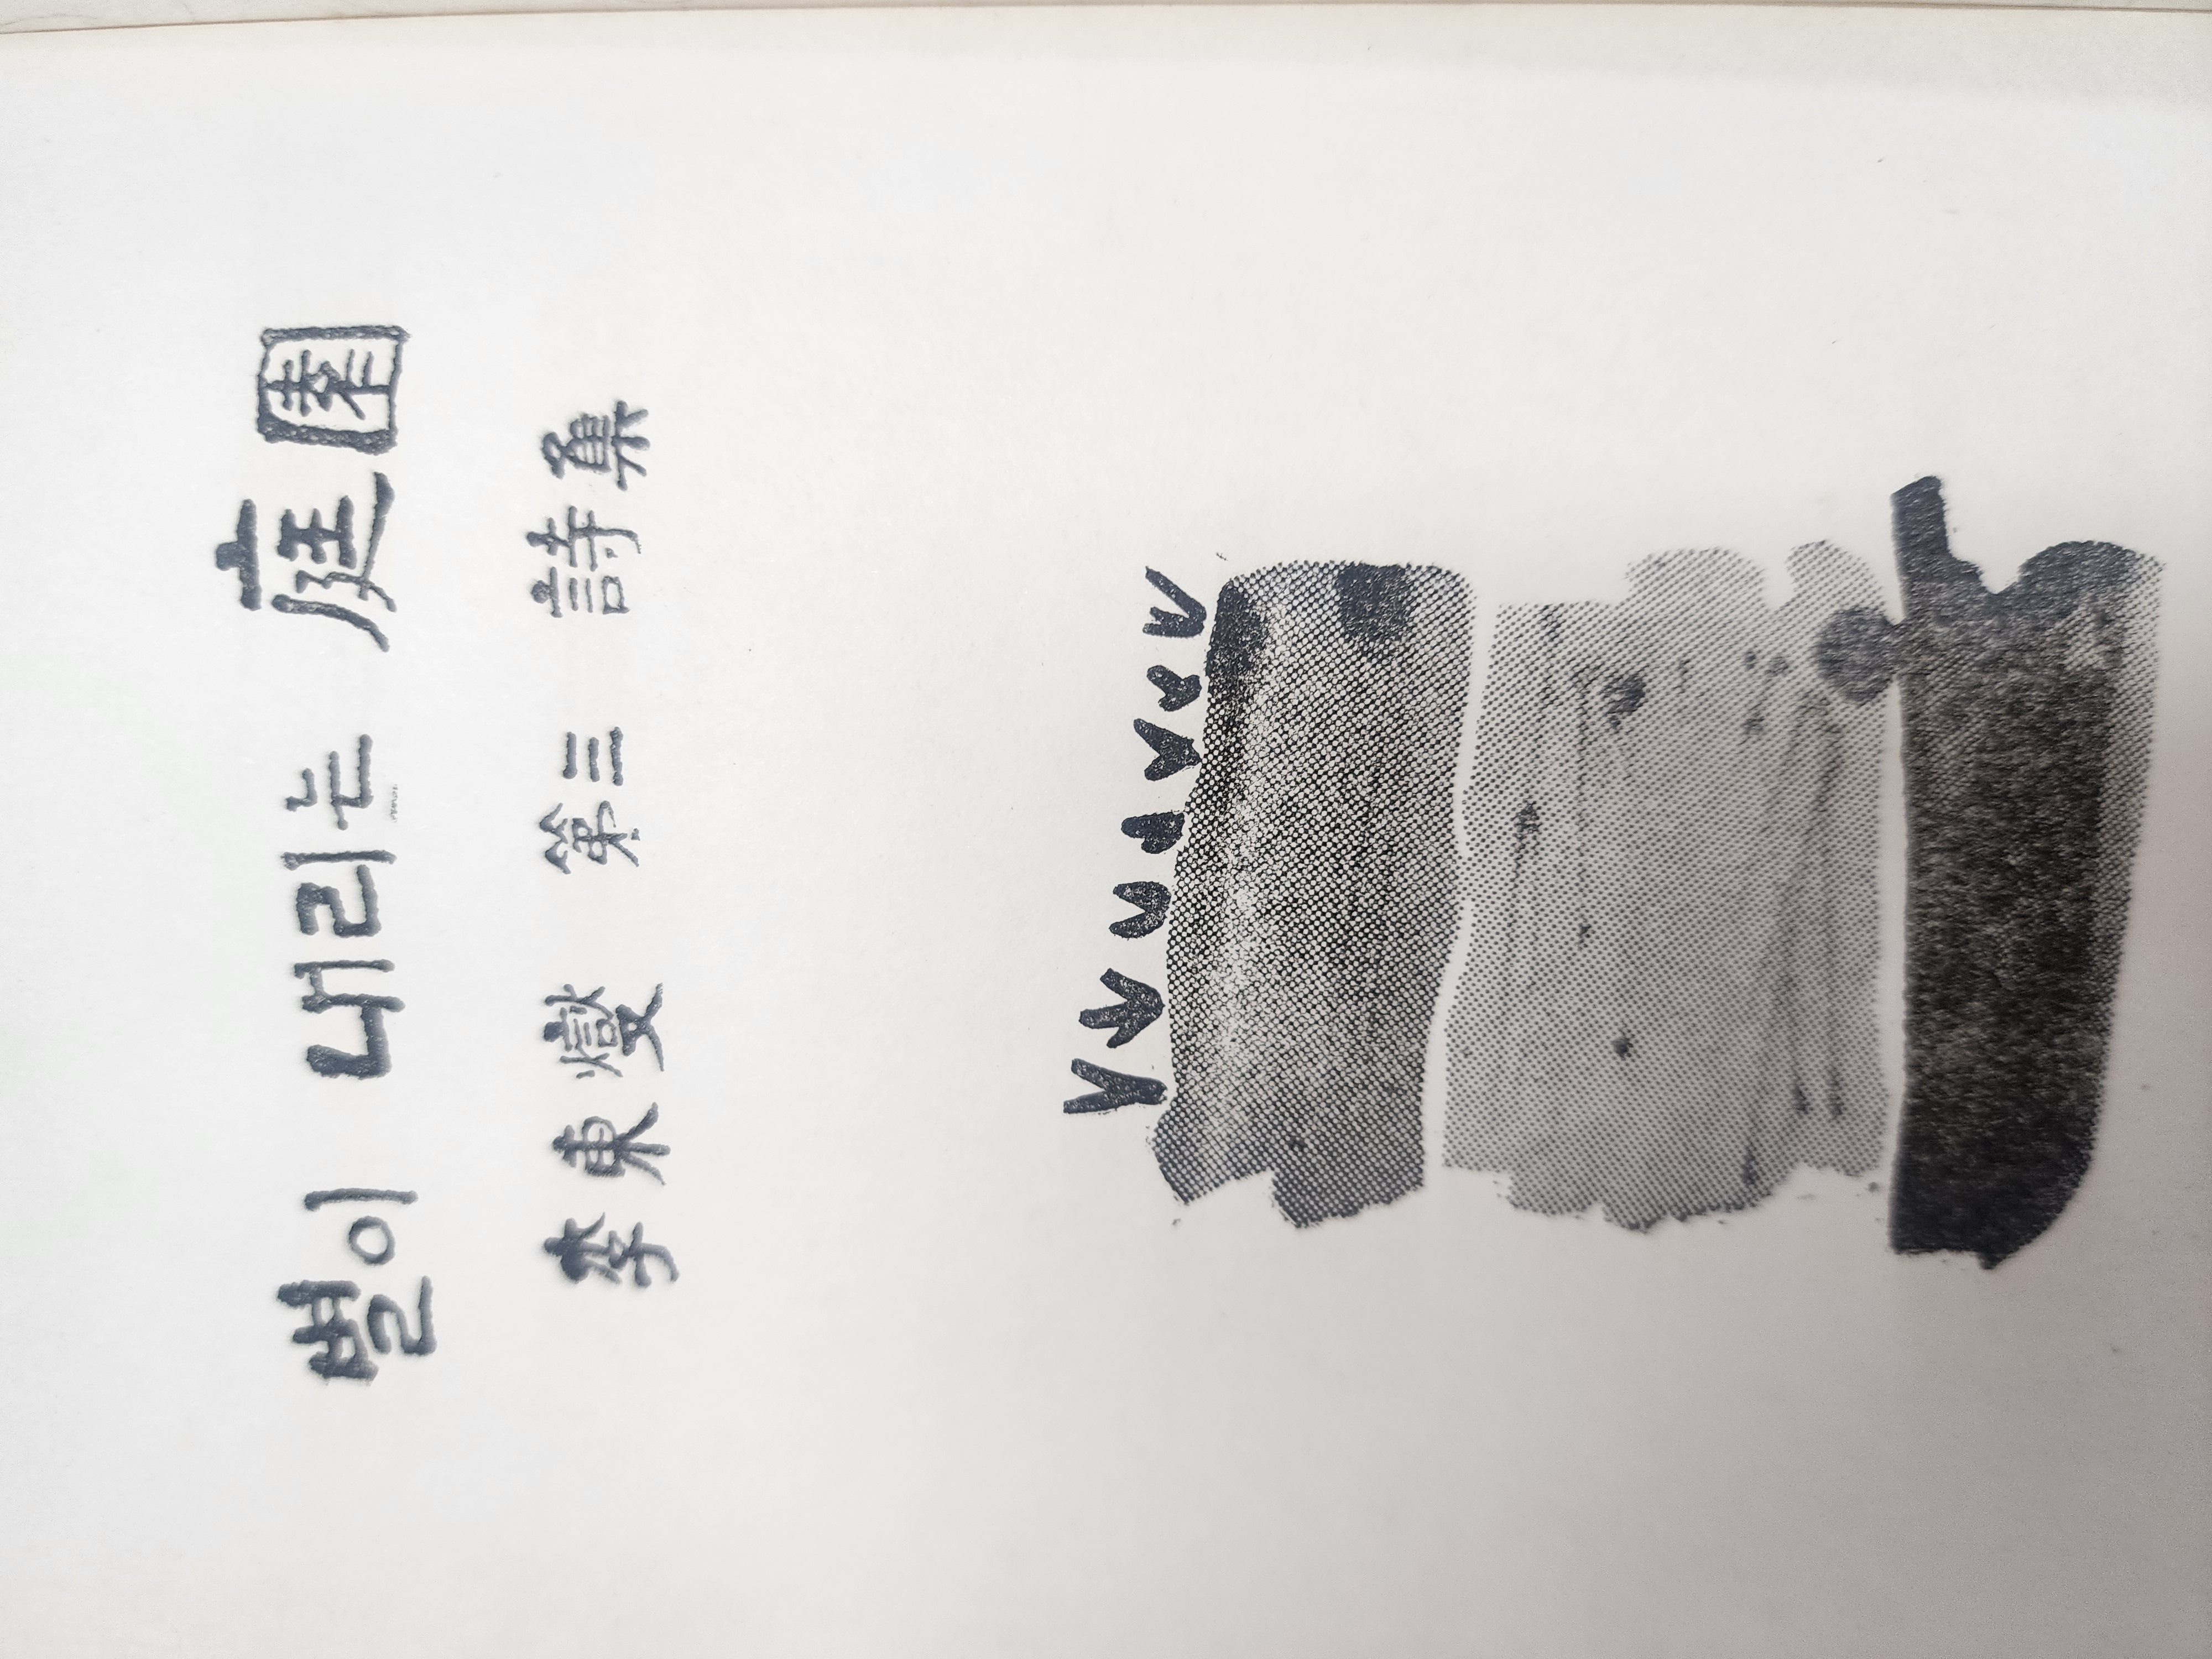 별이 내리는 庭園
李東燮 第三 詩集